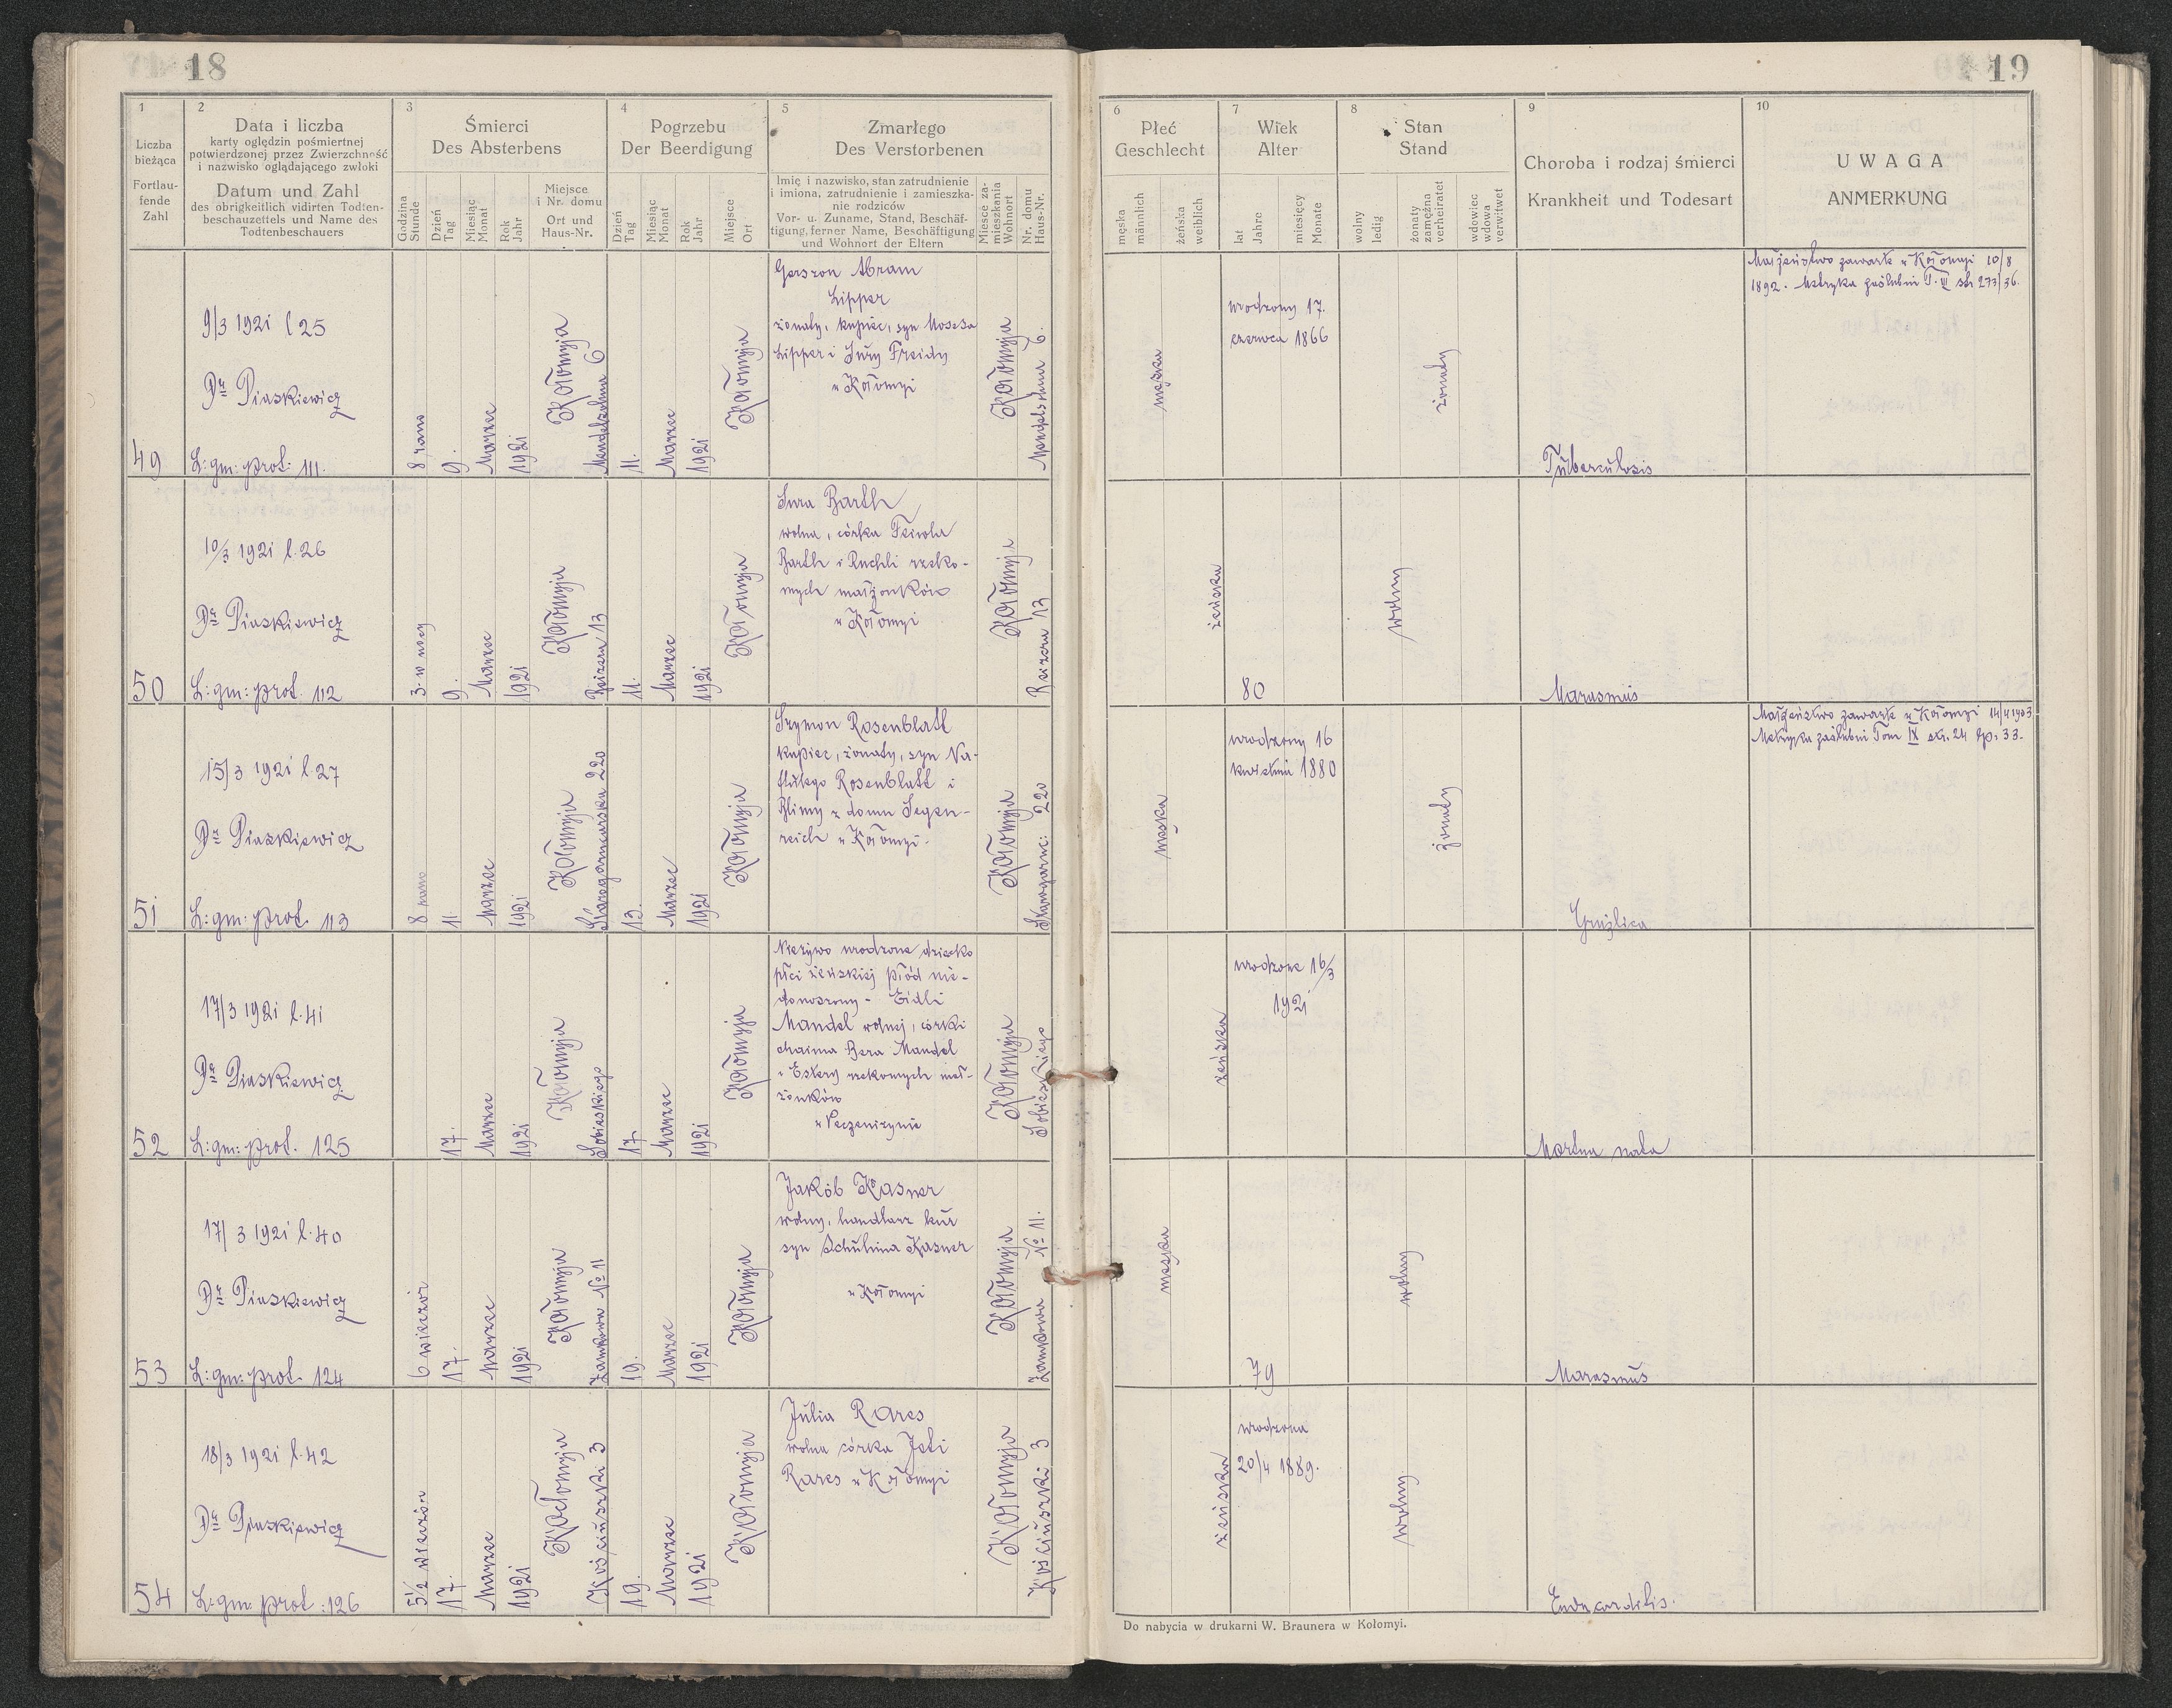 18
1
Liczba
bieżąca
Fortlau-
fende
Zahl
2
Data i liczba
karty oględzin pośmiertnej
potwierdzonej przez Zwierzchność
i nazwisko oglądającego zwłoki
Datum und Zahl
des obrigkeitlich vidirten Todten-
beschauzettels und Name des
Todtenbeschauers
3
Śmierci
Des Absterbens
Godzina
Stunde
Dzień
Tag
Miesiąc
Monat
Rok
Jahr
Miejsce
i Nr. domu
Ort und
Haus-Nr.
4
Pogrzebu
Der Beerdigung
Dzień
Tag
Miesiąc
Monat
Rok
Jahr
Miejsce
Ort
5
Zmarłego
Des Verstorbenen
Imię i nazwisko, stan zatrudnienie
i imiona, zatrudnienie i zamieszka-
nie rodziców
Vor- u. Zuname, Stand, Beschäf-
tigung, ferner Name, Beschäftigung
und Wohnort der Eltern
Miesce za-
mieszkania
Wohnort
Nr. domu
Haus-Nr.
49
9/3 1921 l 25
Dr Piaskiewicz
L: gm: prot: 111.
8 rano
9.
Marzec
1921
Kołomyja
Mendelsohna 6
11.
Marzec
1921
Kołomyja
Gerszon Abram
Lipper
żonaty, kupiec, syn Mosesa
Lipper i Sury Freidy
w Kołomyi
Kołomyja
Mendelsohna 6.
50
10/3 1921 l. 26
Dr Piaskiewicz
L: gm: prot. 112
3. w nocy
9.
Marzec
1921
Kołomyja
Reizera 13
11.
Marzec
1921
Kołomyja
Sura Barth
wolna, córka Feiwla
Barth i Ruchli rzeko-
mych małżonków
w Kołomyi
Kołomyja
Reizera 13
51
15/3 1921 l. 27
Dr Piaskiewicz
L: gm: prot. 113
8 rano
11
Marzec
1921
Kołomyja
Starogarncarska 220
13.
Marzec
1921
Kołomyja
Szymon Rosenblatt
kupiec, żonaty, syn Na-
ftulego Rosenblatt i
Blimy z domu Segen-
reich w Kołomyi.
Kołomyja
Starogarnc: 220
52
17/3 1921 l. 41
Dr Piaskiewicz
L: gm: prot. 125
17.
Marzec
1921
Kołomyja
Sobieskiego
17.
Marzec
1921
Kołomyja
Nieżywo urodzone dziecko
płci żeńskiej płód nie-
donoszony - Eidli
Mandel wolnej, córki
Chaima Bera Mandel
i Estery rzekomych mał-
żonków
w Peczeniżynie
Kołomyja
Sobieskiego
53
17/3 1921 l. 40
Dr Piaskiewicz
L: gm: prot. 124
6 wieczór
17.
Marzec
1921
Kołomyja
Zamkowa No 11
19.
Marzec
1921
Kołomyja
Jakób Kasner
wolny, handlarz kur
syn Schulima Kasner
w Kołomyi
Kołomyja
Zamkowa No 11.
54
18/3 1921 l. 42
Dr Piaskiewicz
L: gm: prot: 126
5½ wieczór
17.
Marzec
1921
Kołomyja
Kościuszki 3
19.
Marzec
1921
Kołomyja
Julia Rares
wolna córka Jeti
Rares w Kołomyi
Kołomyja
Kościuszki 3
19
6
Płeć
Geschlecht
męska
männlich
żeńska
weiblich
7
Wiek
Alter
lat
Jahre
miesięcy
Monate
8
Stan
Stand
wolny
ledig
żonaty
zamężna
verheiratet
wdowiec
wdowa
verwitwet
9
Choroba i rodzaj śmierci
Krankheit und Todesart
10
UWAGA
ANMERKUNG
męska
urodzony 17.
czerwca 1866
żonaty
Tuberculosis
Małżeństwo zawarte w Kołomyi 10/8
1892. Metryka zaślubin T. III str 273/36.
żeńska
80
wolny
Marasmus
męska
urodzony 16
kwietnia 1880
żonaty
Gruźlica
Małżeństwo zawarte w Kołomyi 14/4 1903
Metryka zaślubin Tom IX str. 24 lp. 33.
żeńska
urodzone 16/3
1921
Mortua nata
męska
79
wolny
Marasmus
żeńska
urodzona
20/4 1889.
wolny
Endocarditis.
Do nabycia w drukarni W. Braunera w Kołomyi.